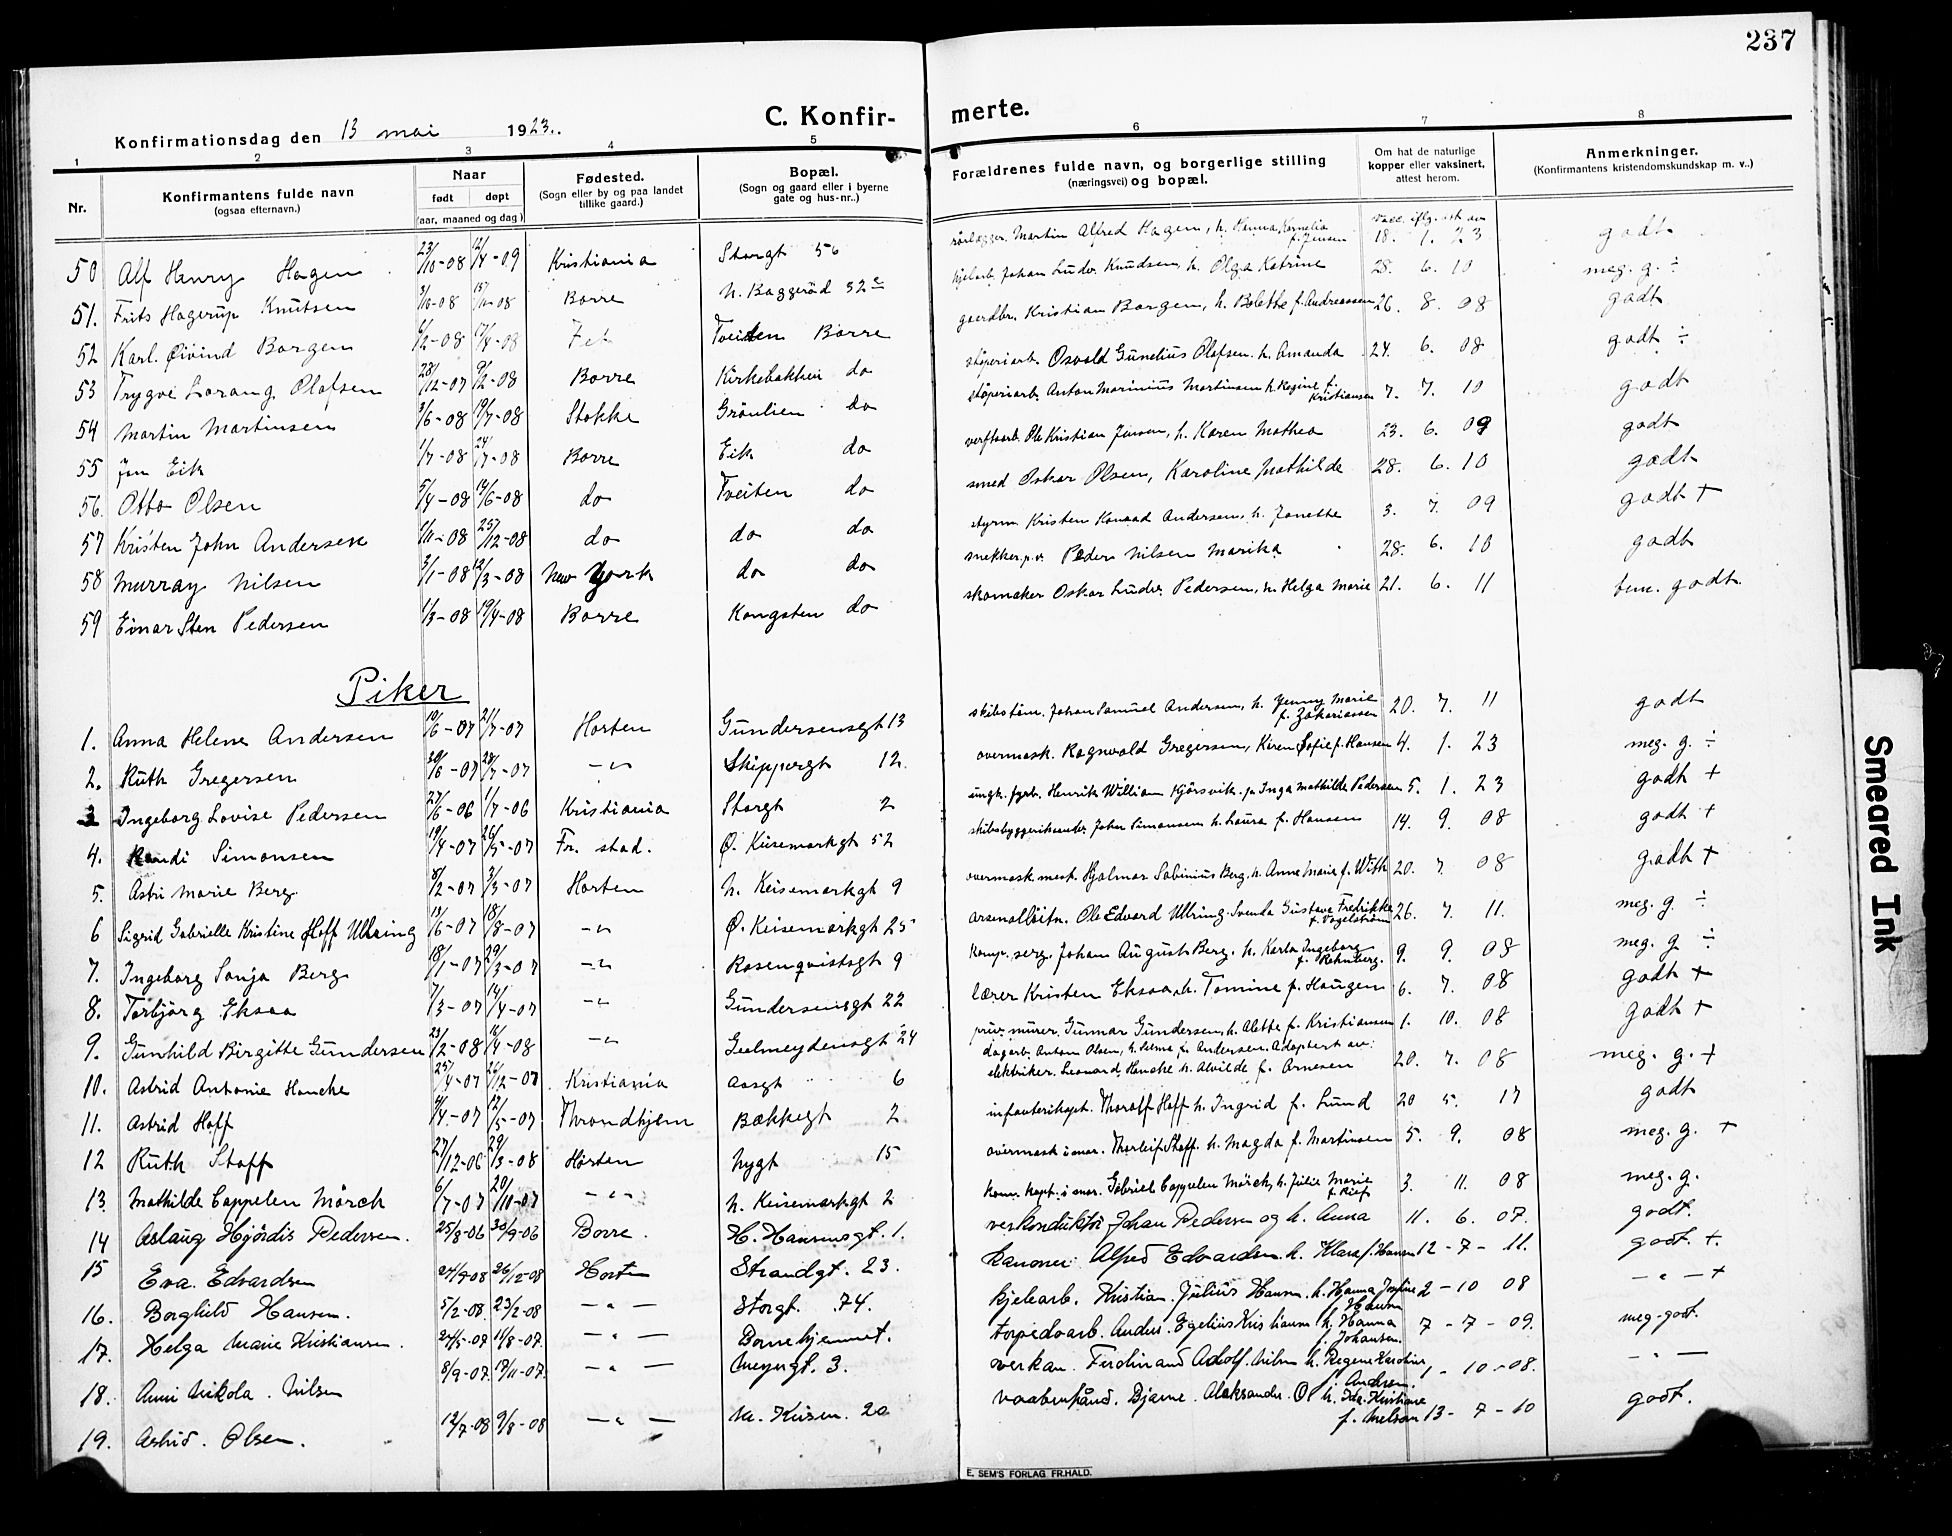 237
Konfirmationsdag den 13 mai 1923.
C. Konfir- merte.
1 2 3 4 5 6 7 8
Nr.
Konfirmantens fulde navn
(ogsaa efternavn.)
Naar
født døpt
(aar, maaned og dag)
Fødested.
(Sogn eller by og paa landet
tillike gaard.)
Bopæl.
(Sogn og gaard eller i byerne
gate og hus-nr..)
Forældrenes fulde navn, og borgerlige stilling
(næringsvei) og bopæl.
Om hat de naturlige
kopper eller vaksinert,
attest herom.
Anmerkninger.
(Konfirmantens kristendomskundskap m. v..)
50 Alf Henry Hagen 23/10-08 12/4-09 Kristiania Storgt 56 rørlægger. Martin Alfred Hagen, h. Hanna Kornelia f. Jensen 18. 1. 23 godt
51. Frits Hagerup Knutsen 3/10-08 Borre N. Baggerød 52 c kjelarb. Johan Ludv. Knudsen, h. Olga Katrine 28. 6. 10 meg. g. ÷
52 Karl. Øivind Borgen 6/2-08 17/4-08 Tveiten Borre gaardbr. Kristian Borgen, h. Bolette f. Andreassen 26. 8. 08 godt
53 Trygve Lorang Olafsen 28/12-07 9/2-08 Borre Kirkebakken do støperiarb. Osvald Gunelius Olafsen. h. Amanda 24. 6. 08 godt ÷
54 Martin Martinsen 3/6-08 19/7-08 Stokke Grönlien do støperiarb. Anton Marinius Martinsen h. Regine f. Kristiansen 7. 7. 10 godt
55 Jen Eik 1/7-08 24/7-08 Borre Eik do verftsarb. Ole Kristian Jensen, h. Karen Mathea 23. 6. 09 godt
56. Otto Olsen 5/4-08 14/6-08 do Tveiten do smed Oskar Olsen, Karoline Mathilde 28. 6. 10 godt
57 Kristen John Andersen 6/10-08 25/12-08 do do do styrm. Kristen Konrad Andersen, h. Janette 3. 7. 09 godt +
58 Murray Nilsen 3/1-08 12/3-08 New York do do snekker p.v. Peder Nilsen Marika 28. 6. 10 godt
59 Einar Sten Pedersen 1/3-08 19/4-08 Borre Kongsten do skomaker Oskar Ludv. Pedersen, h. Helga Marie 21. 6. 11 tem. godt
Piker
1. Anna Helene Andersen 10/6-07 21/7-07 Horten Gundersensgt 13 skibstöm. Johan Samuel Andersen, h. Jenny Marie f. Zakariassen 20. 7. 11 godt
2. Ruth Gregersen 20/6-07 28/7-07 -"- Skippergt 12. overmask. Ragnvald Gregersen, Karen Sofie f. Hansen 4. 1. 23 meg. g. ÷
3 Ingeborg Lovise Pedersen 27/6-06 1/7-06 Kristiania Storgt 2 Henrik William Hjörsvik. p Inga Mathilde Pedersen 5. 1. 23 godt +
4. Randi Simonsen 19/4-07 26/5-07 Fr. stad. Ø. Keisemarkgt 52 John Simonsen h. Laura f. Hansen 14. 9. 08 godt +
5. Astri Marie Berg 8/2-07 3/3-07 Horten N. Keisemarkgt 9 overmask. mest. Hjalmar Sabinius Berg, h. Anne Marie f. With 20. 7. 08 godt +
6 Sigrid Gabrielle Kristine Hoff Ullring 19/6-07 18/8-07 -"- Ø. Keisemarkgt 25 arsenalløitn. Ole Edvard Ullring. Svenda Gustava Fredrikke f. Vogelstrøm 26. 7. 11. meg. g. ÷
7. Ingeborg Sonja Berg 18/1-07 29/3-07 -"- Rosenqvistsgt 9 komp. serg. Johan August Berg. h. Karla Ingeborg f. Rehnberg. 9. 9. 08 meg. g ÷
8. Torbjørg Eksaa 7/3-07 14/4-07 -"- Gundersensgt 22 lærer Kristen Eksaa, h. Tomine f. Haugen 6. 7. 08 godt +
9. Gunhild Birgitte Gundersen 23/2-08 12/4-08 -"- Geelmeydensgt 24 priv. mürer. Gunnar Gundersen, h. Alette f. Kristiansen 1. 10. 08 godt +
10. Astrid Antonie Hancke 25/4-07 26/12-07 Kristiania Aasgt 6 dagarb. Anton Olsen, h. Selma f. Andersen. Adoptert av: elektriker. Leonard Hancke h. Alvilde f. Arnesen 20. 7. 08 meg. g. +
11. Astrid Hoff 9/4-07 12/5-07 Throndhjem Bækkegt 2 infanterikapt. Thoralf Hoff h. Ingrid f. Lund 20 5. 17 godt
12 Ruth Stoff 27/12-06 29/3-08 Horten Nygt 15 overmask i mar. Thorleif Stoff. h. Magda f. Martinsen 5. 9. 08 meg. g. +
13. Mathilde Cappelen Mörck 6/7-07 20/10-07 -"- N. Keisemarkgt 2 kom. kapt. i mar. Gabriel Cappelen Mörck, h. Julie Marie 3. 11. 08 meg. g.
14 Aslaug Hjördis Pedersen. 25/8-06 30/9-06 Borre. H. Hansensgt. 1. Johan Pedersen og h. Anna 11. 6. 07. godt.
15 Eva. Edvardsen 24/9-08 26/12-08 Horten Strandgt. 23. kanoner Alfred Edvardsen h. Klara f. Hansen 12-7-11. godt. +.
16. Borghild Hansen. 5/2-08. 23/2-08 -"- Storgt. 74. kjelearb. Kristian Julius Hansen h. Hanna Josefine f. Hansen 2-10 08 -"- +
17. Helga Marie Kristiansen. 24/5-07 11/8-07. -"- Barnehjemmet. torpedoarb. Anders. Egelius Kristiansen h. Hanna f. Johansen. 7-7-09. meg-godt.
18. Anni Nikola. Nilsen 8/9-07. 17/11-07. -"- Meyersgt. 3. Ferdinand Adolf. Nilsen h. Regine Karoline f. Andersen. 1-10-08. -"-
19. Astrid. Olsen. 12/7-08 9/8-08 -"- N. Keisem. 20 vaabenhånd. Bjarne. Aleksander. Ol h. Ida Kristiane f. Nielsen 13-7-10 godt.
E. SEM'S FORLAG FR.HALD.
Smeared Ink